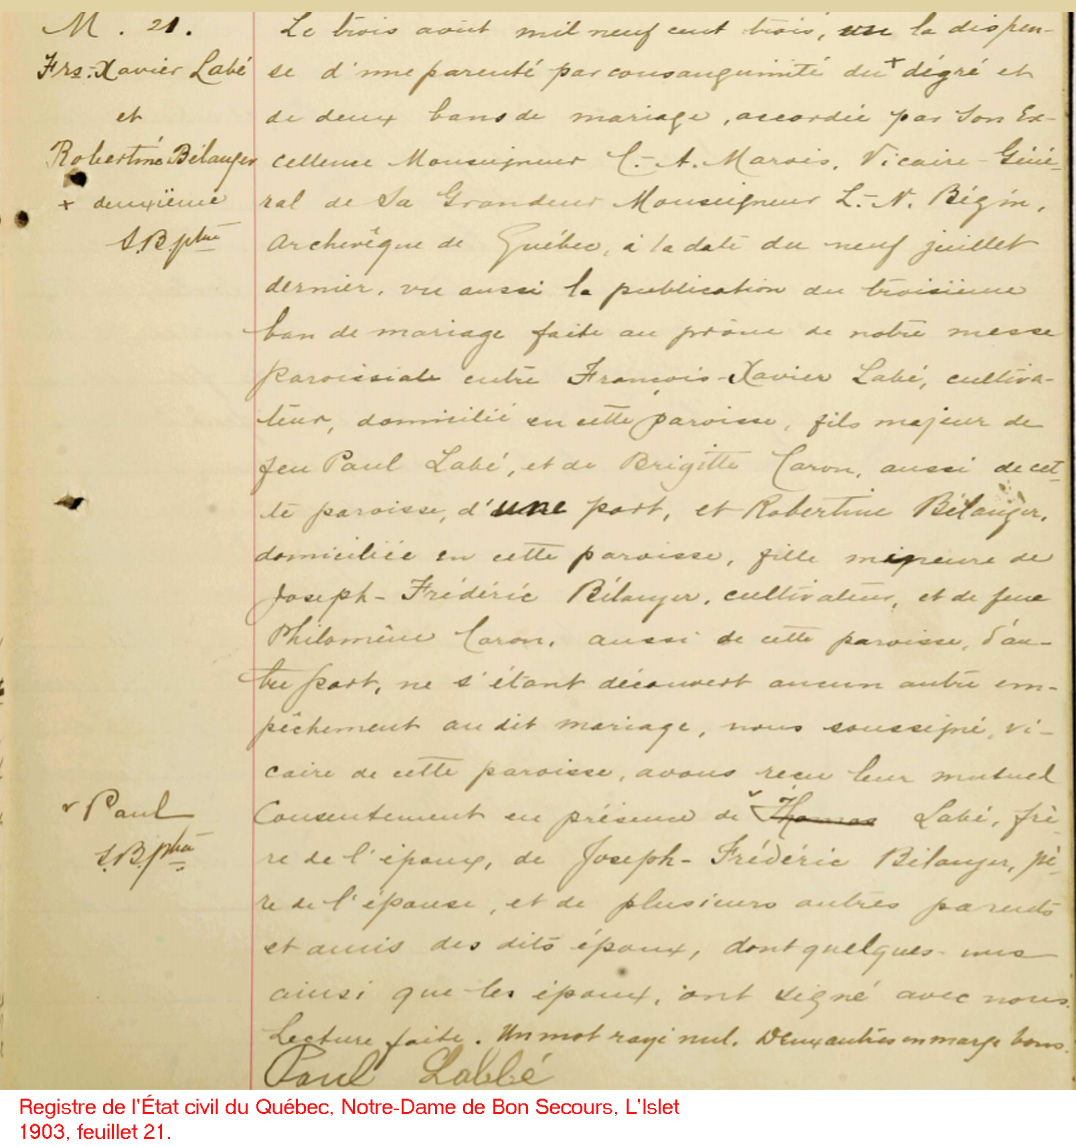 M. 21.
Frs-Xavier Labé
et
Robertine Bélanger
+ deuxième
S.B. ptre
Le trois août mil neuf cent trois, vu la dispen-
se d'une parenté par consanguinité du + dégré et
de deux bans de mariage, accordée par Son Ex-
cellence Monseigneur C.-A. Marois, Vicaire-Géné-
ral de Sa Grandeur Monseigneur L.-N. Bégin,
Archevêque de Québec, à la date du neuf juillet
dernier, vu aussi la publication du troisième
ban de mariage faite au prône de notre messe
paroissiale entre François-Xavier Labé, cultiva-
teur, domicilié en cette paroisse, fils majeur de
feu Paul Labé, et de Brigitte Caron, aussi de cet-
te paroisse, d'une part, et Robertine Bélanger,
domiciliée en cette paroisse, fille mineure de
Joseph-Frédéric Bélanger, cultivateur, et de feue
Philomène Caron, aussi de cette paroisse, d'au-
tre part, ne s'étant découvert aucun autre em-
pêchement au dit mariage, nous soussigné, vi-
caire de cette paroisse, avons reçu leur mutuel
v Paul
S.B. ptre
Consentement en présence de v Thomas Labé, frè-
re de l'époux, de Joseph-Frédéric Bélanger, pè-
re de l'épouse, et de plusieurs autres parents
et amis des dits époux, dont quelques-uns
ainsi que les époux, ont signé avec nous.
Lecture faite. Un mot rayé nul. Deux autres en marge bons.
Paul Labbé
Registre de l'État civil du Québec, Notre-Dame de Bon Secours, L'Islet
1903, feuillet 21.